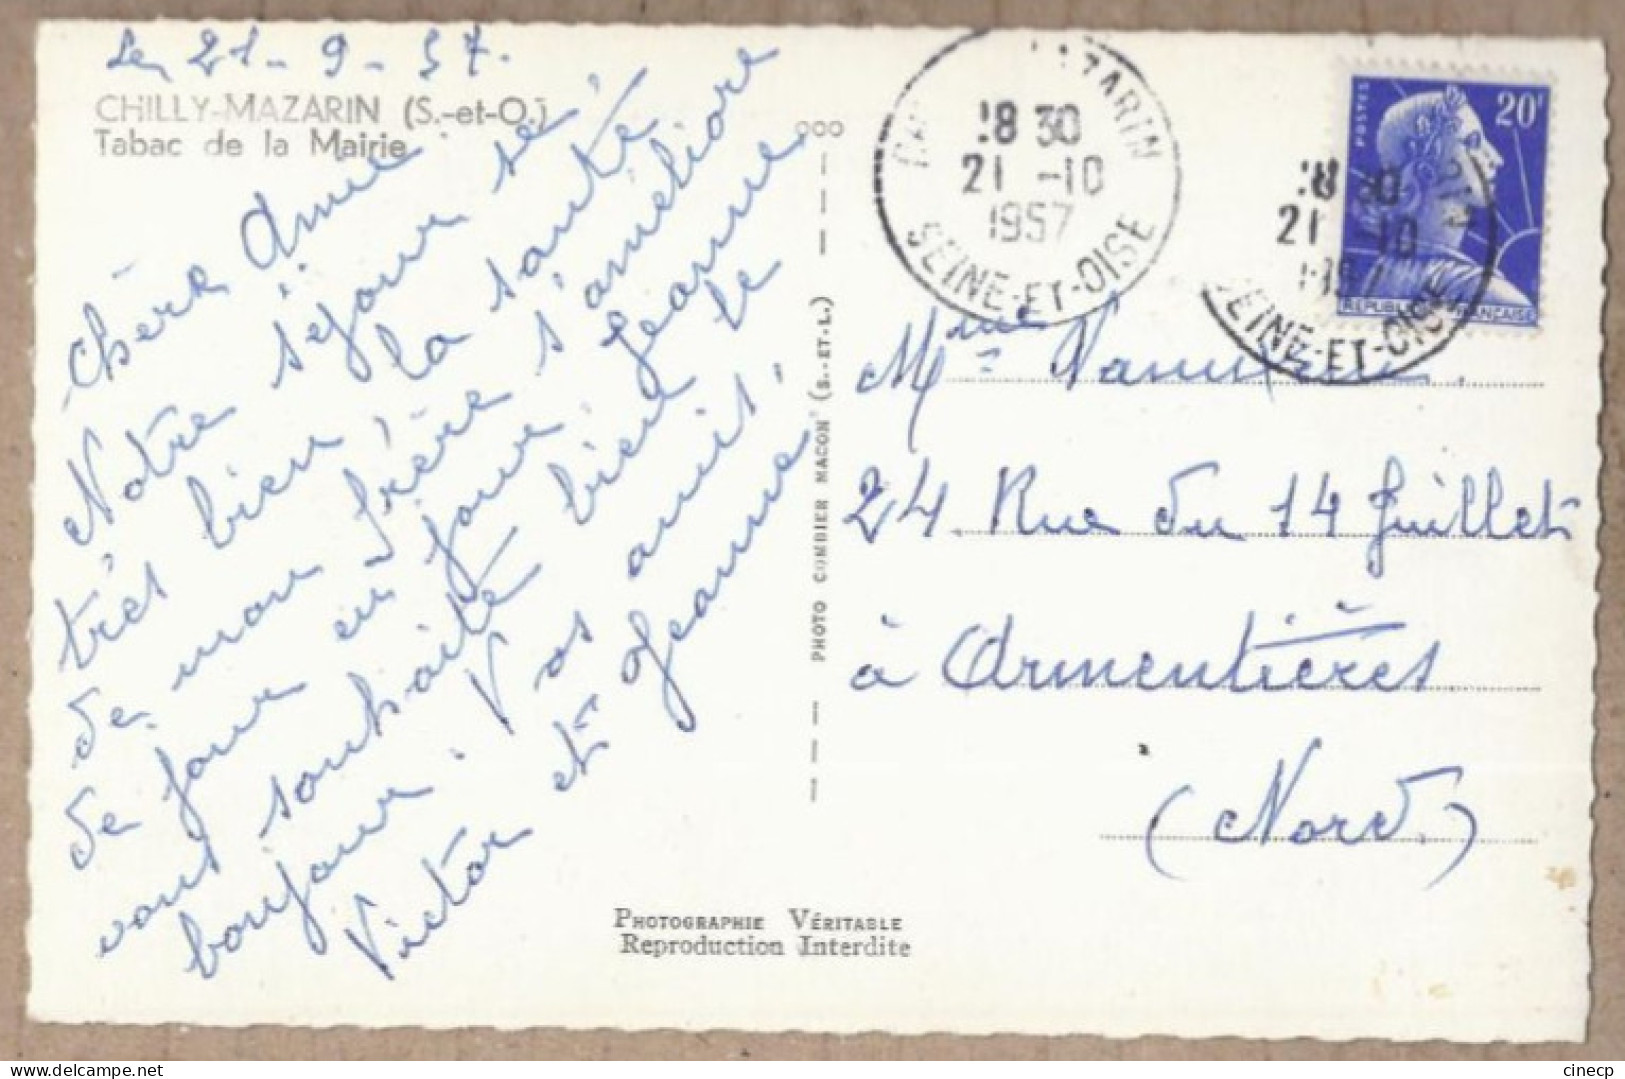 Le 21-9-57.
CHILLY-MAZARIN (S.-et-O.)
Tabac de la Mairie
Chère Amie
Notre séjour se
très bien, la santé
de mon frère s'améliore
de jour en jour Jeanne
vous souhaite bien le
bonjour. Vos amis,
Victor et Jeanne
PHOTO COMBIER MACON (S.-ET-L.)
18 30
21 -10
1957
SEINE-ET-OISE
18 30
21 10
1957
SEINE-ET-OISE
POSTES
20F
Mme
24 Rue du 14 Juillet
à Armentières
(Nord)
PHOTOGRAPHIE VÉRITABLE
Reproduction Interdite
cinecp